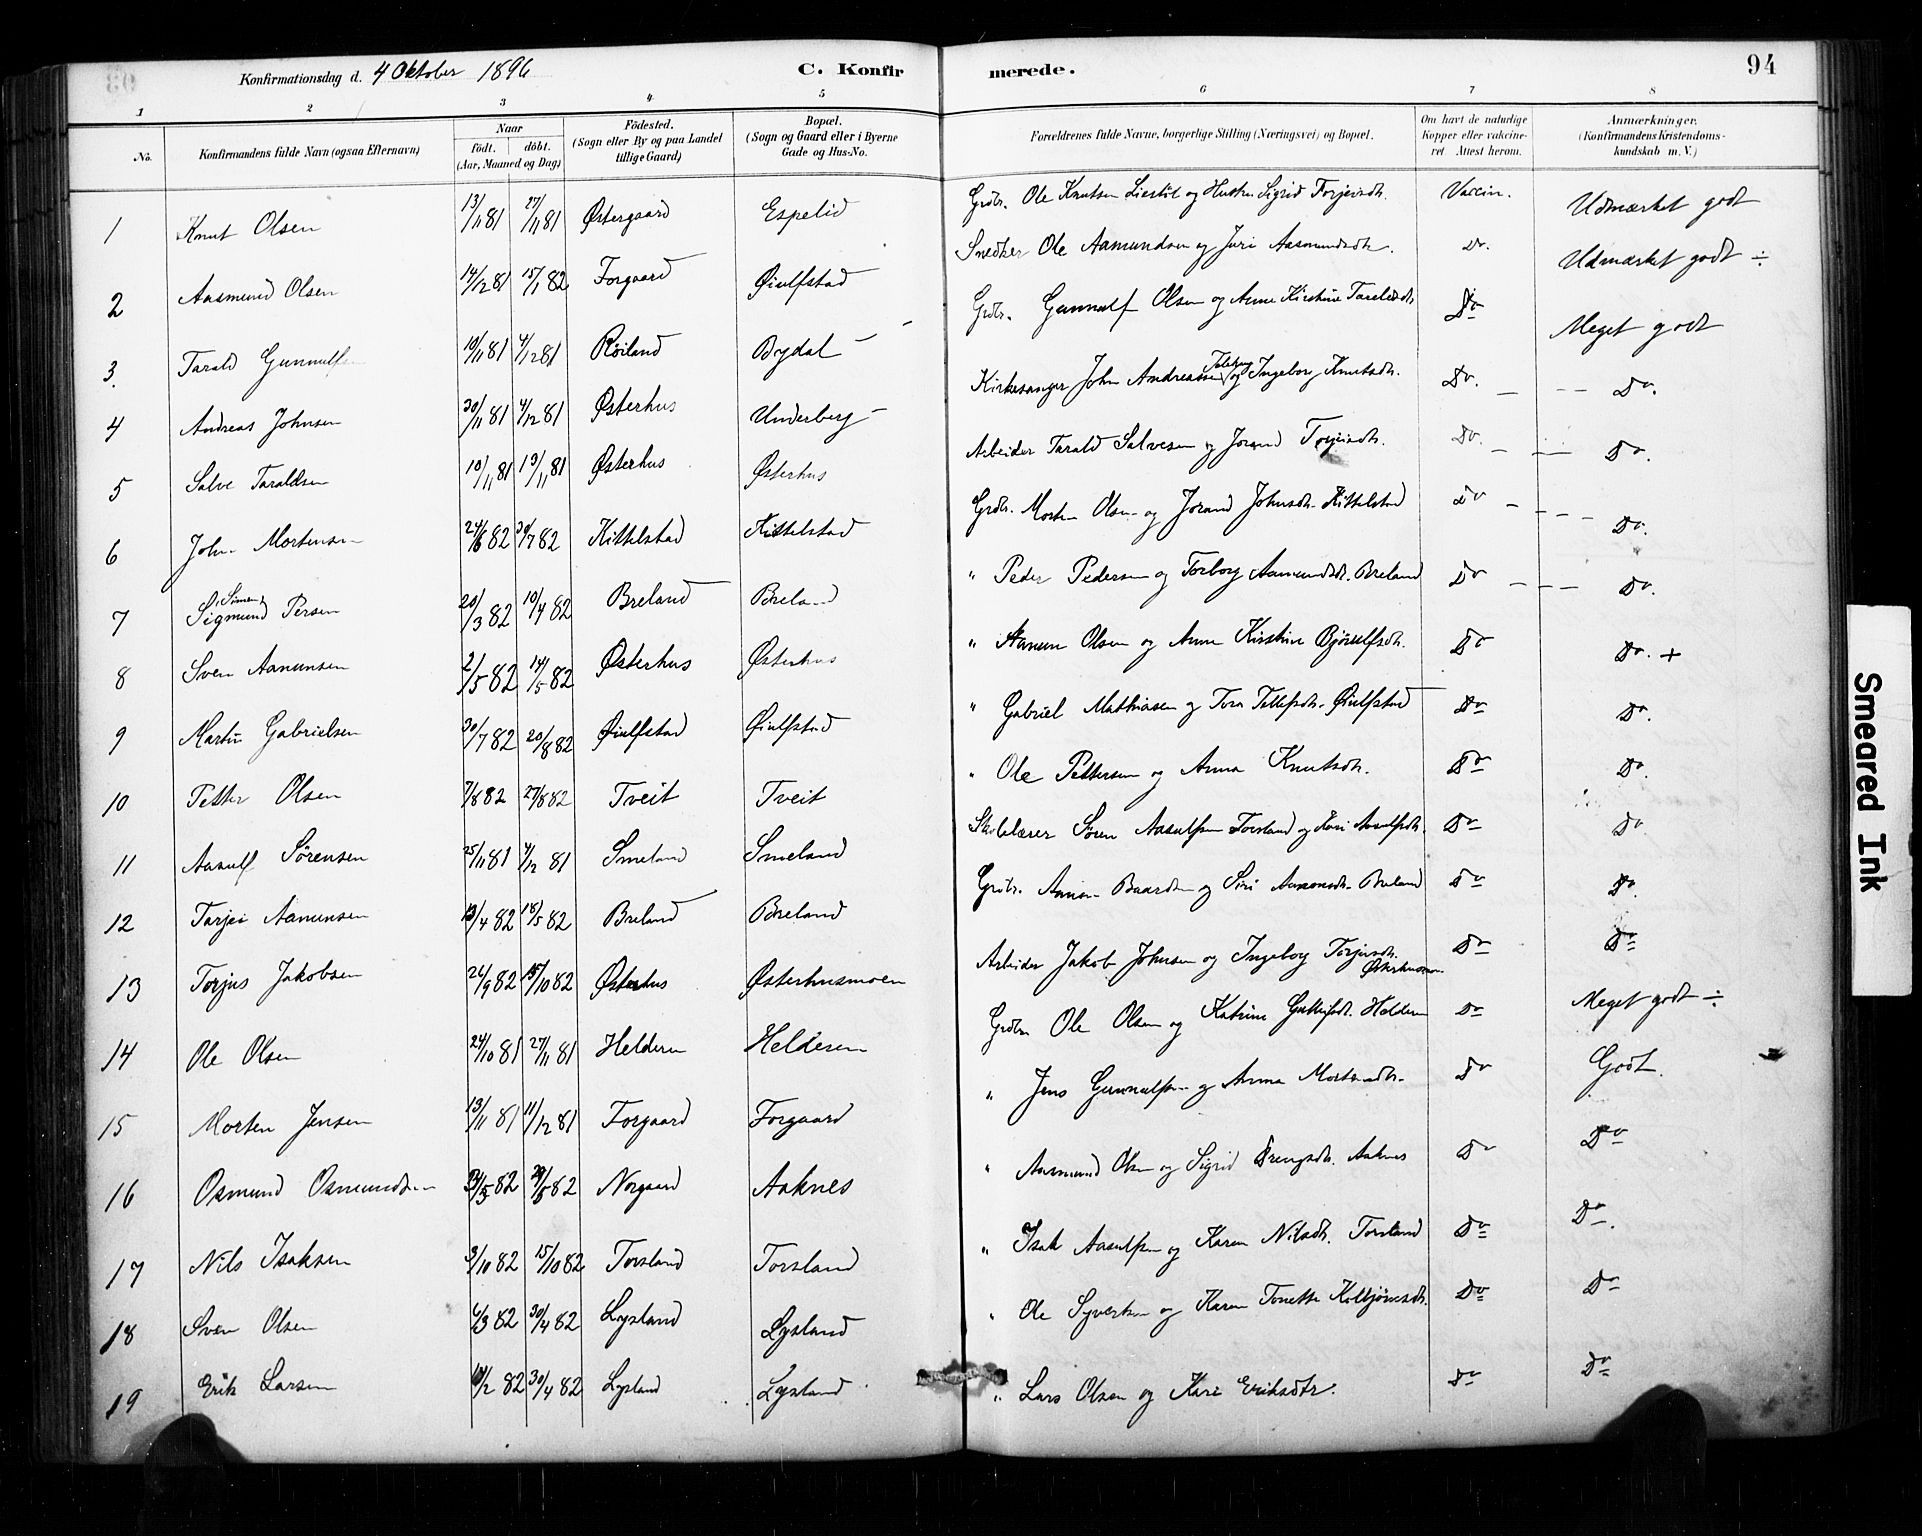 Konfirmationsdag d. 4 Oktober 1896 C. Konfirmerede. 94
1 2 3 4 5 6 7 8
No. Konfirmandens fulde Navn (ogsaa Efternavn) Naar födt. döbt. (Aar, Maaned og Dag) Födested. (Sogn eller By og paa Landet tillige Gaard) Bopæl. (Sogn og Gaard eller i Byerne Gade og Hus-No. Forældrenes fulde Navne, borgerlige Stilling (Næringsvei) og Bopæl. Om havt de naturlige Kopper eller vakcineret. Attest herom. Anmærkninger. (Konfirmandens Kristendomskundskab m. V.)
1 Knut Olsen 13/11 81 27/11 81 Østergaard Espelid Grdbr. Ole Knutsen Liestöl og Hustru Sigrid Torjeisdtr. Vaccin. Udmærket godt
2 Aasmund Olsen 14/12 81 15/1 82 Forgaard Øiulfstad Snedker Ole Aamundsen og Juri Aasmundsdtr. Do. Udmærket godt ÷
3. Tarald Gunnulfsen 10/11 81 4/12 81 Röiland Bydal Grdbr. Gunnulf Olsen og Anne Kirstine Taraldsdtr Do Meget godt
4 Andreas Johnsen 20/11 81 4/12 81 Østerhus Underberg Kirkesanger John Andreassen og Ingeborg Knutsdtr. Do. Do.
5 Salve Taraldsen 10/11 81 19/11 81 Østerhus Østerhus Arbeider Tarald Salvesen og Jorand Torjeisdtr. Do. Do.
6 John Mortensen 24/6 82 30/7 82 Kittelstad Kittelstad Grdbr. Morten Olsen og Jorand Johnsdtr. Kittelstad Do Do.
7 Sigmund Simen Persen 20/3 82 10/4 82 Breland Breland " Peder Pedersen og Torborg Aamundsdtr. Breland Do Do.
8 Sven Aanunsen 2/5 82 14/5 82 Østerhus Østerhus " Aanun Olsen og Anne Kirstine Björulfsdtr. Do Do. +
9 Martin Gabrielsen 30/7 82 20/8 82 Øiulfstad Øiulfstad " Gabriel Mathiasen og Tora Tellefsdtr. Øiulfstad Do Do.
10 Petter Olsen 7/8 82 27/8 82 Tveit Tveit " Ole Pettersen og Anna Knutsdtr. Do Do.
11 Aasulf Sörensen 25/11 81 4/12 81 Smeland Smeland Skolelærer Sören Aasulfsen Torsland og Kari Aasulfsdtr. Do Do
12 Tarjei Aanunsen 13/4 82 18/5 82 Breland Breland Grdbr. Aanon Baardsen og Siri Aanonsdtr. Breland Do Do.
13 Torjus Jakobsen 26/9 82 15/10 82 Østerhus Østerhusmoen Arbeider Jakob Johnsen og Ingeborg Torjusdtr. Østerhusmoen Do Do
14 Ole Olsen 24/10 81 27/11 81 Helderen Helderen Grdbr. Ole Olsen og Katrine Guttormsdtr. Helderen Do Meget godt ÷
15 Morten Jensen 13/11 81 11/12 81 Forgaard Forgaard " Jens Gunnulfsen og Anna Mortensdtr. Do Godt.
16 Osmund Osmundsen 82 82 Norgaard Aaknes " Aasmund Olsen og Sigrid Drengsdtr. Aaknes Do Do
17 Nils Isaksen 3/10 82 15/10 82 Torsland Torsland " Isak Aasulfsen og Karen Nilsdtr. Torsland Do Do.
18 Sven Olsen 6/3 82 30/4 82 Lysland Lysland " Ole Syvertsen og Karen Tonette Kolbjörnsdtr. Do Do
19 Erik Larsen 10/2 82 30/4 82 Lysland Lysland " Lars Olsen og Kari Eriksdtr. Do Do
Smeared Ink